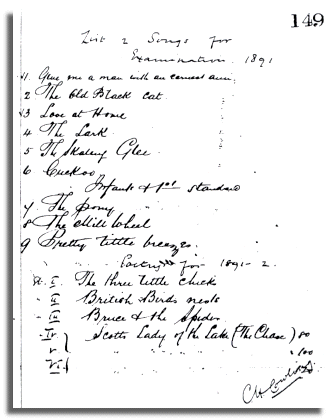 149
List 2 Songs for
Examination 1891
1. Give me a man with an earnest aim.
2 The Old Black Cat
3 Love at Home
4 The Lark
5 The Skating Glee
6 Cuckoo
Infants & 1st Standard
7 The pony
8 The Mill Wheel
9 Pretty little breezes.
Poetry for 1891-2.
St. I. The three little chick
" II British Birds nests
" III Bruce & the Spider
" IV Scotts Lady of the Lake (The Chase) 80
" V " 100
VI